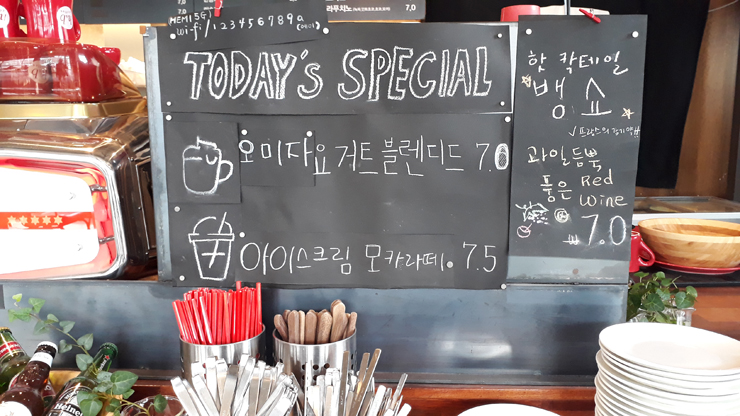 (MEMI 5G)
wi-fi/123456789a
7.0
라푸치노
7.0
TODAY'S SPECIAL
오미자요거트블렌디드 7.0
아이스크림 모카라떼. 7.5
핫 칵테일
뱅쇼
과일듬뿍
품은 Red
Wine
₩7.0
Heineken